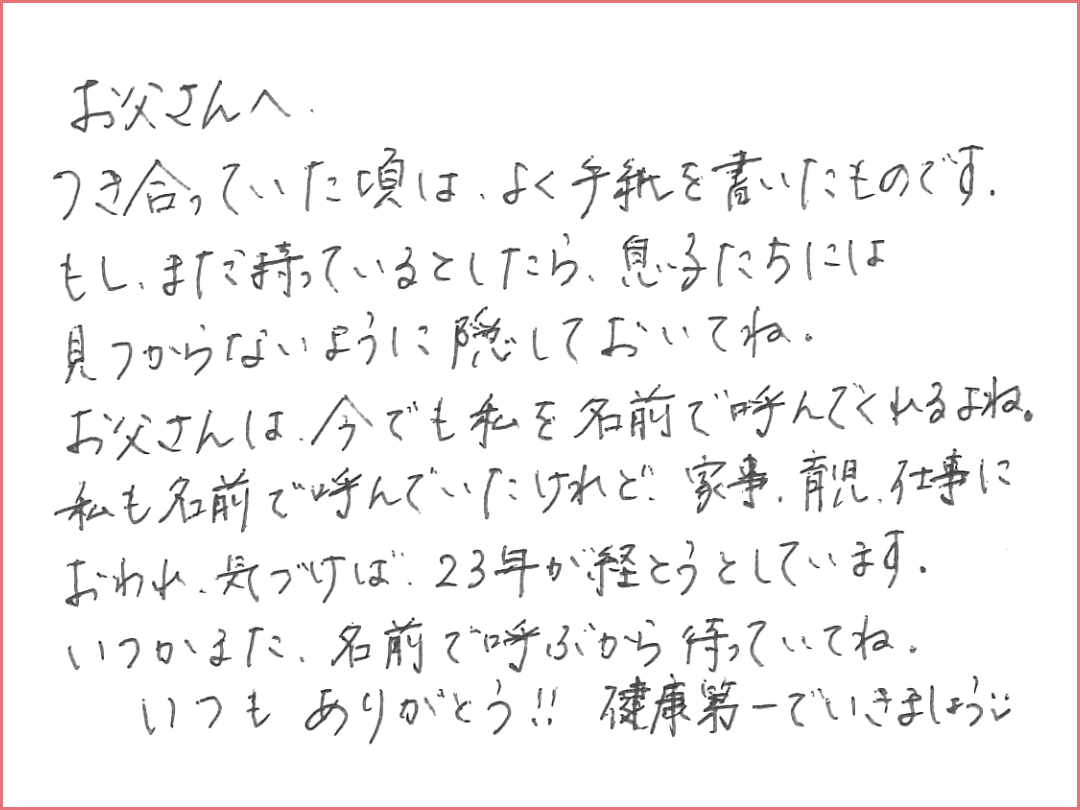 お父さんへ.
つき合っていた頃は、よく手紙を書いたものです.
もし、まだ持っているとしたら、息子たちには
見つからないように隠しておいてね.
お父さんは、今でも私を名前で呼んでくれるよね。
私も名前で呼んでいたけれど、家事、育児、仕事に
おわれ、気づけば、23年が経とうとしています.
いつかまた、名前で呼ぶから待っていてね.
いつもありがとう!! 健康第一でいきましょう